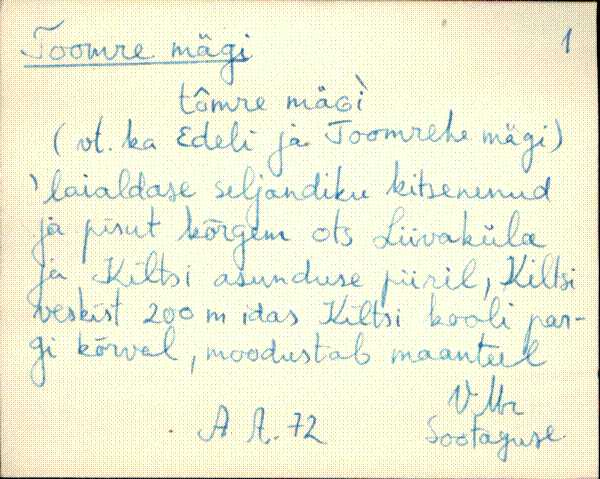 Toomre mägi 1
tômre mäGì
( vt. ka Edeli ja Toomrehe mägi)
laialdase seljandiku kitsenenud
ja pisut kõrgem ots Liivaküla
ja Kiltsi asunduse piiril, Kiltsi
veskist 200 m idas Kiltsi kooli par-
gi kõrval, moodustab maanteel
V. Mr
A. A. 72 Sootaguse